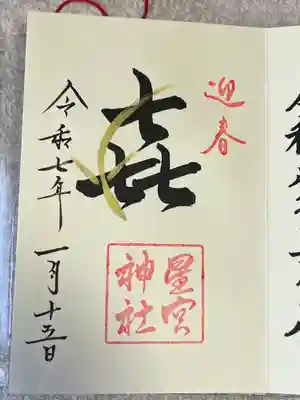 迎春
㐂
星宮
神社
令和七年一月十五日